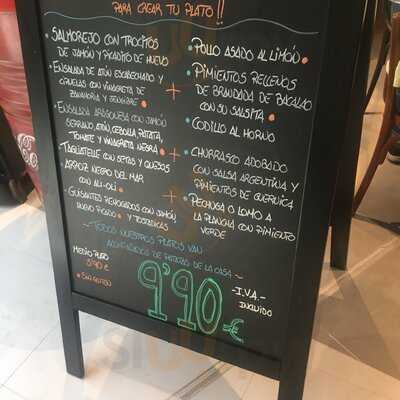 PARA CREAR TU PLATO!!
• SALMOREJO CON TROCITOS
DE JAMÓN Y PICADITO DE HUEVO
• ENSALADA DE ATÚN ESCABECHADO Y
CIRUELAS CON VINAGRETA DE
ZANAHORIA Y JENGIBRE
• ENSALADA ARAGONESA CON JAMÓN
SERRANO, ATÚN, CEBOLLA, PATATA,
TOMATE Y VINAGRETA NEGRA
• TAGLIATELLE CON SETAS Y QUESOS
• ARROZ NEGRO DEL MAR
CON ALI-OLI
• GUISANTES REHOGADOS CON JAMÓN
HUEVO PICADO Y TOSTADICAS
+
+
+
• POLLO ASADO AL LIMÓN
• PIMIENTOS RELLENOS
DE BRANDADA DE BACALAO
CON SU SALSITA
• CODILLO AL HORNO
• CHURRASCO ADOBADO
CON SALSA ARGENTINA Y
PIMIENTOS DE GUERNICA
• PECHUGA O LOMO A
LA PLANCHA CON PIMIENTO
VERDE
~ TODOS NUESTROS PLATOS VAN
ACOMPAÑADOS DE PATATAS DE LA CASA ~
MEDIO PLATO
5'90 €
• SIN GLUTEN
9'90 €
- I.V.A. -
INCLUIDO